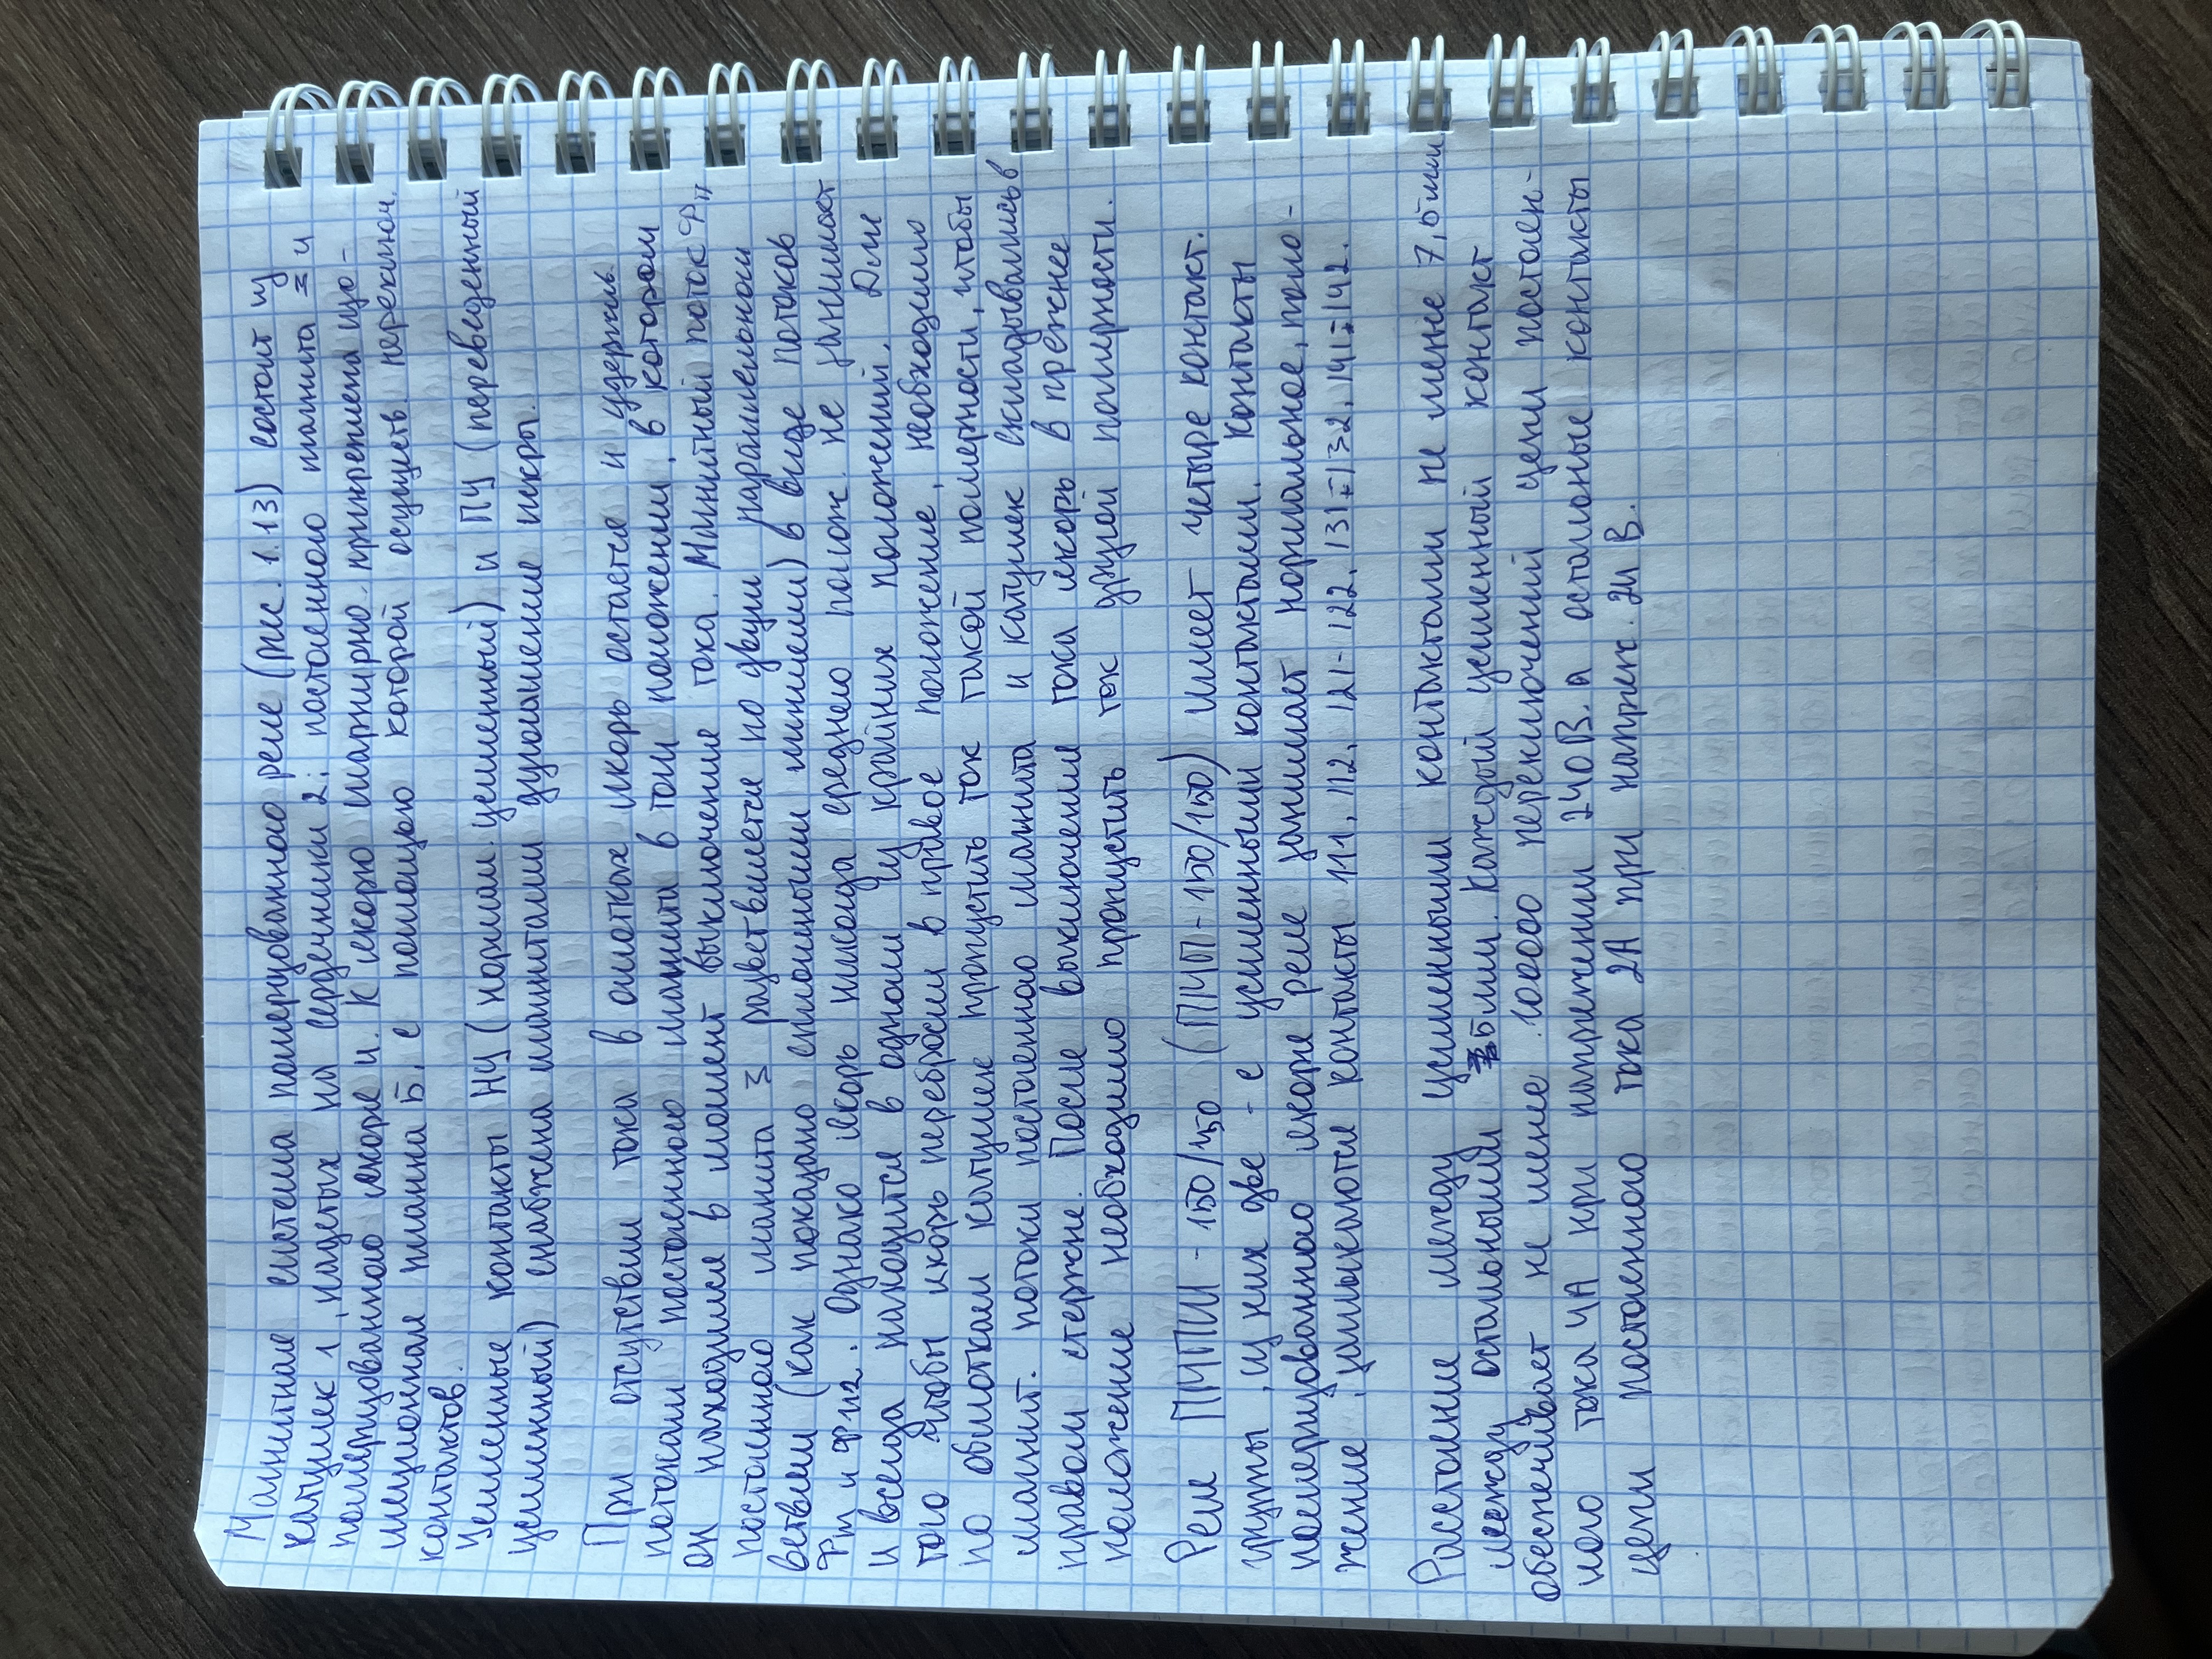 Магнитная система поляризованного реле (рис. 1.13) состоит из
катушек 1, надетых на сердечники 2; постоянного магнита 3 и
поляризованного якоря 4. К якорю шарнирно прикреплена изо-
ляционная планка 5, с помощью которой осуществ. переключ.
контактов.
Усиленные контакты НУ (нормал. усиленный) и ПУ (переведенный
усиленный) снабжена магнитами дугогашение искры.
При отсутствии тока в омотках якорь остается и удержив.
потоками постоянного магнита в том положении, в котором
он находился в момент выключение тока. Магнитный поток Фп
постоянного магнита 3 разветвляется по двум параллельном
ветвям (как показано сплошными линиями) в виде потоков
Фп1 и Фп2. Однако якорь никогда среднего полож. не занимает
и всегда находится в одном из крайних положений. Для
того чтобы якорь перебросим в правое положение, необходимо
по обмоткам катушек пропустить ток такой полярности, чтобы
магнит. потоки постоянного магнита и катушек складывались в
правом стержне. После выключения тока якорь в прежнее
положение необходимо пропустить ток другой полярности.
Реле ПМПШ - 150/150 (ПМП - 150/150) имеет четыре контакт.
группы, из них две - с усиленными контактами. Контакты
поляризованного якоря реле занимает нормальное, поло-
жение, замыкаются контакты 111, 112, 121- 122, 131-132, 141-142.
Расстояние между усиленными контактами не менее 7,5мм
между остальными 5мм. Каждый усиленный контакт
обеспечивает не менее 10000 переключений цепи постоян-
ного тока 4А при напряжении 240В. а осталоные контакты
цепи постоянного тока 2А при напряж. 24 В.